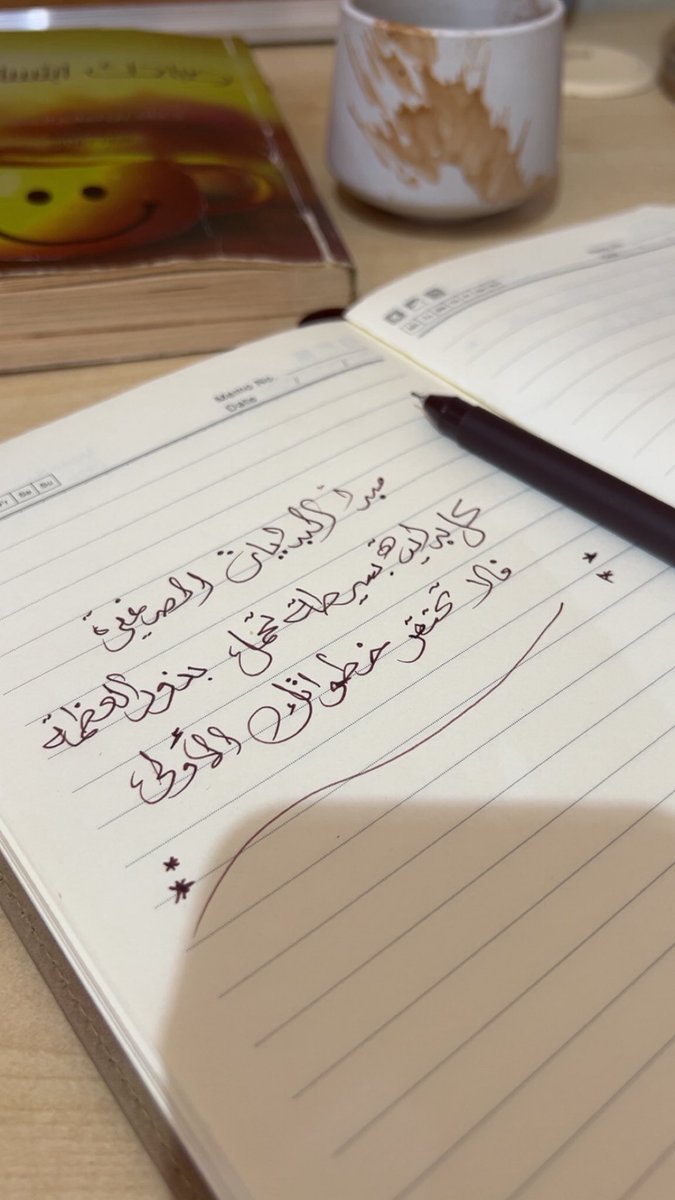 Memo No.
Date / /
Fr Sa Su
مبدأ البدايات الصغيرة
كل بداية بسيطة تحمل بذور العظمة
فلا تحتقر خطواتك الأولى